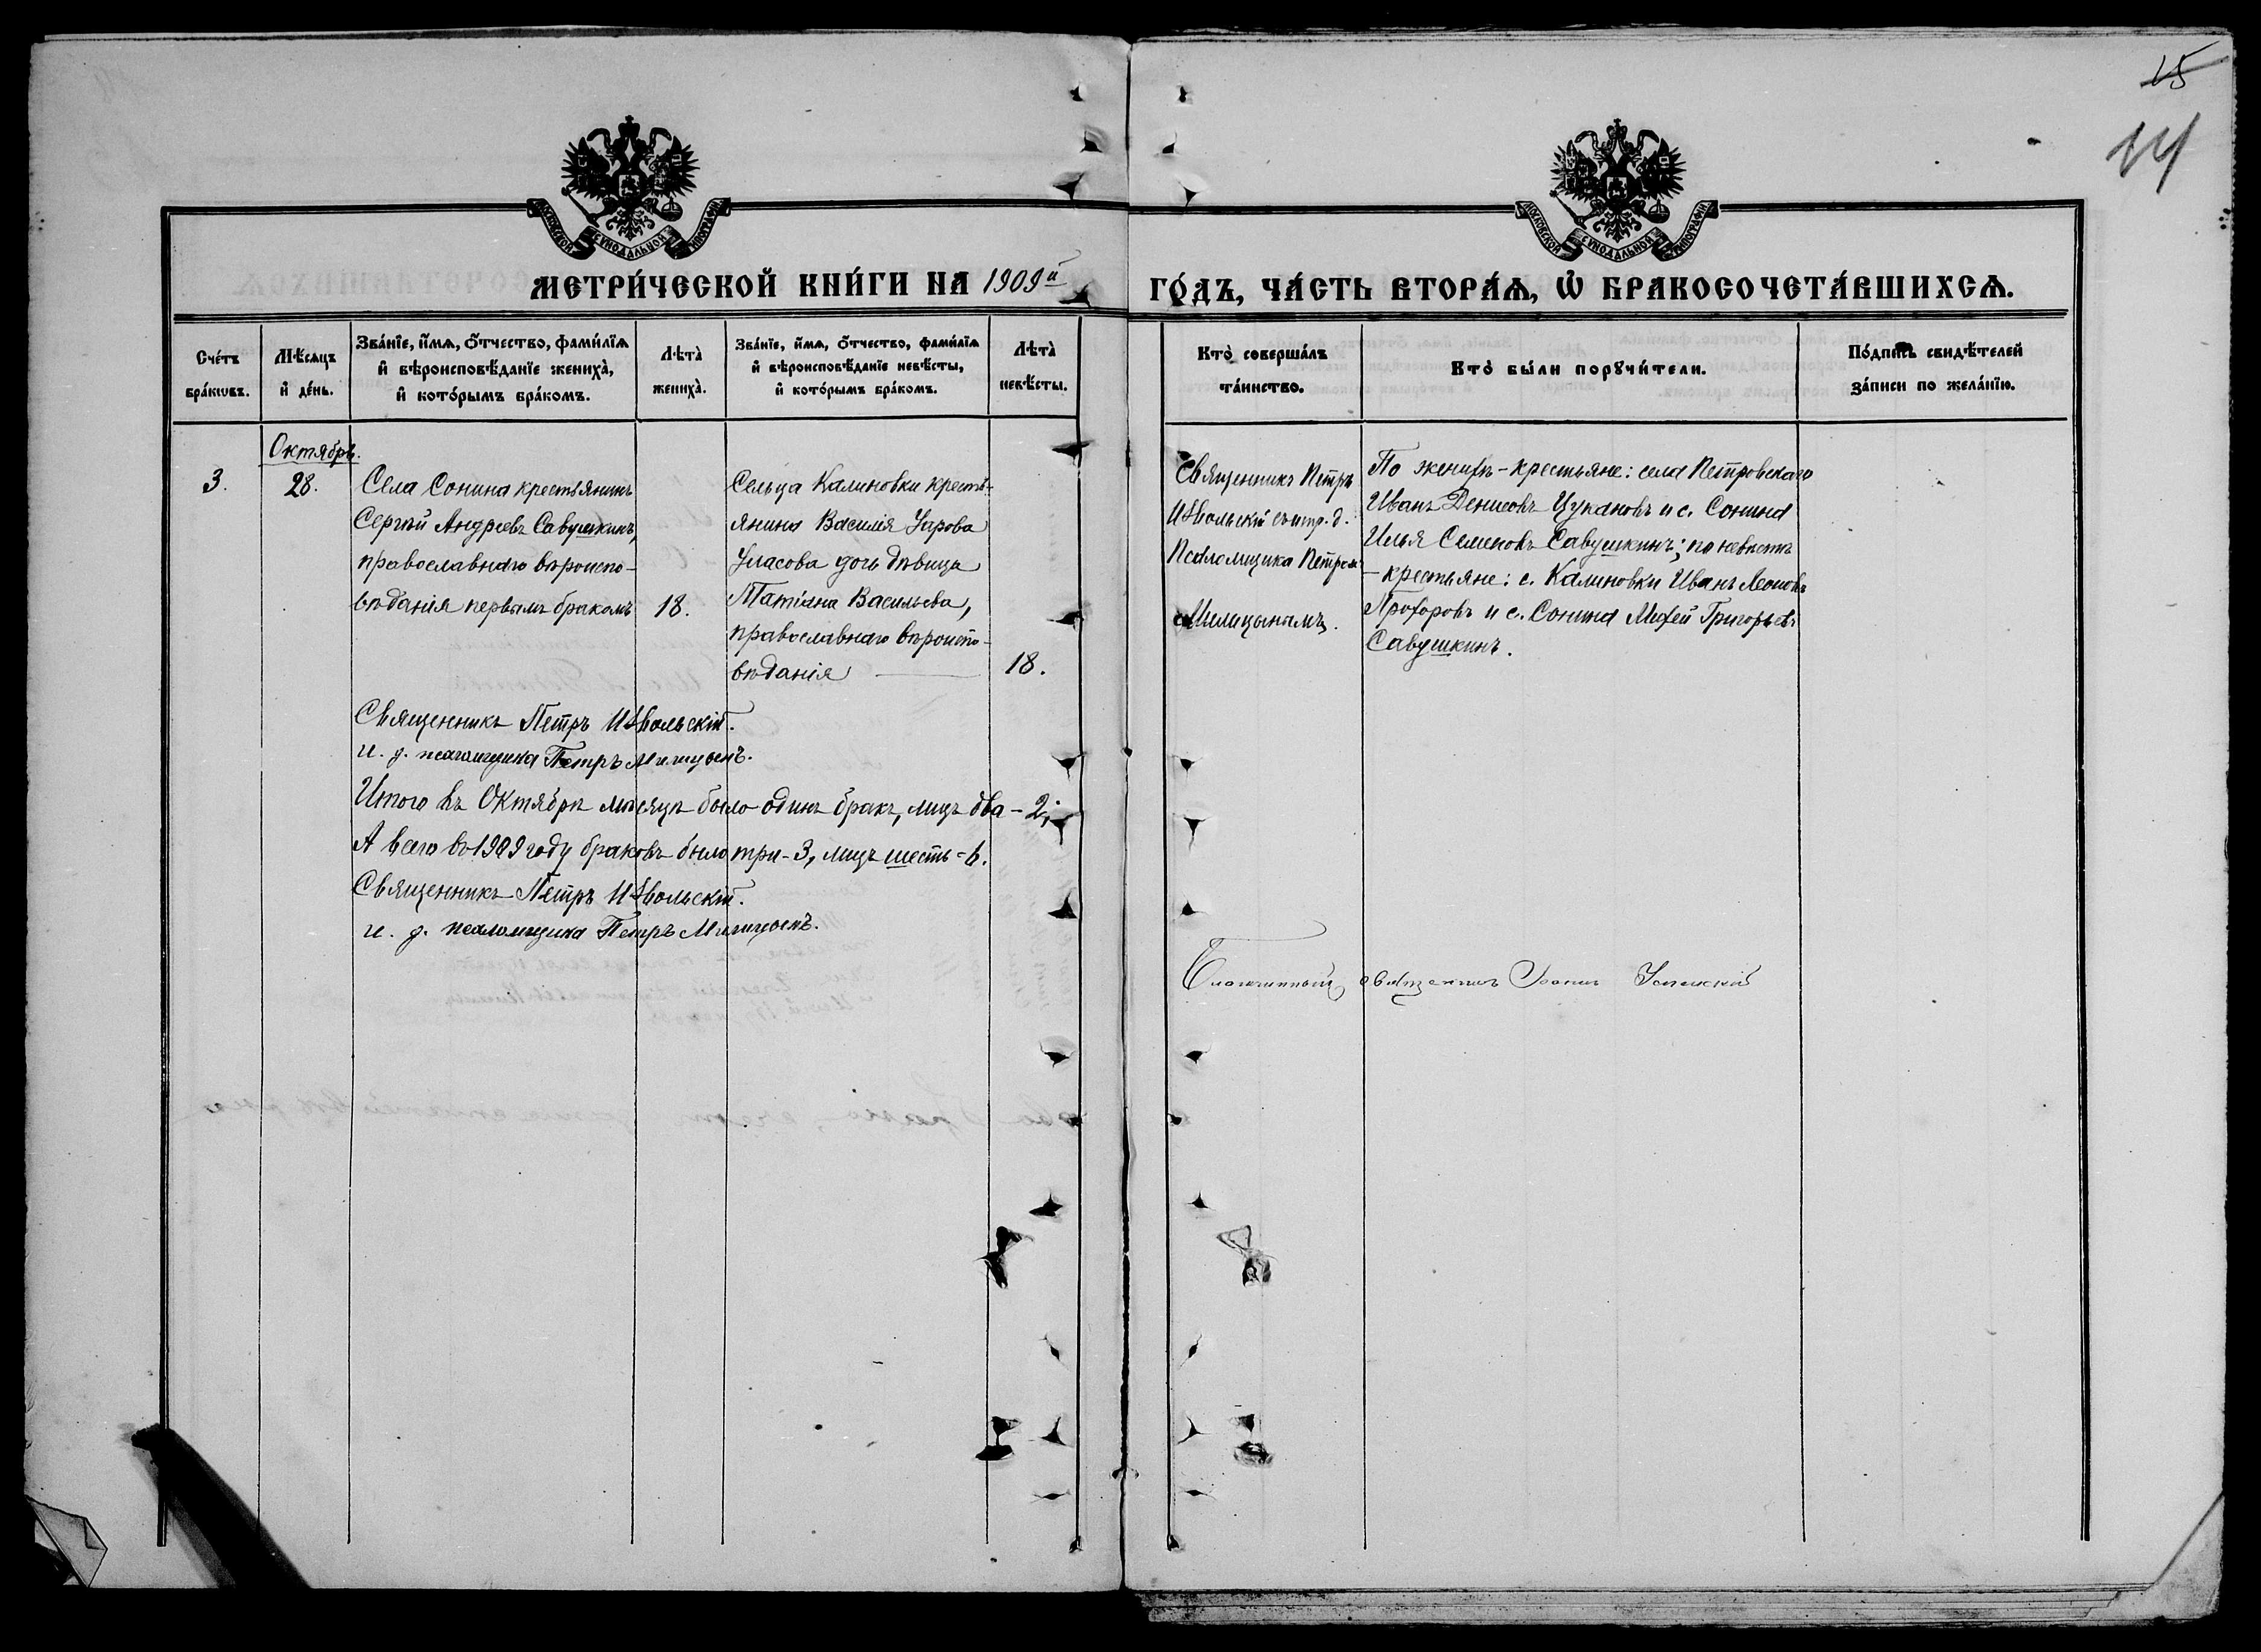 15
14
МОСКОВСКОЙ СѴНОДАЛЬНОЙ ТИПОГРАФІИ
МОСКОВСКОЙ СѴНОДАЛЬНОЙ ТИПОГРАФІИ
МЕТРИ́ЧЕСКОЙ КНИ́ГИ НА 1909й ГО́ДЪ, ЧА́СТЬ ВТОРА́Ѧ, Ѽ БРАКОСОЧЕТА́ВШИХСѦ.
Сче́тъ бра́кѡвъ.
Мѣ́сяцъ и҆ де́нь.
Зва́нїе, и҆́мѧ, ѻ҆́тчество, фами́лїѧ
и҆ вѣроисповѣ́данїе жениха̀,
и҆ кото́рымъ бра́комъ.
Лѣта̀ жениха̀.
Зва́нїе, и҆́мѧ, ѻ҆́тчество, фами́лїѧ
и҆ вѣроисповѣ́данїе невѣ́сты,
и҆ кото́рымъ бра́комъ.
Лѣта̀ невѣ́сты.
Кто̀ соверша́лъ та́инство.
Кто̀ бы́ли порꙋчи́тели.
По́дпись свидѣ́телей
за́писи по жела́нїю.
Октябрь.
3.
28.
Села Сонина крестьянинъ
Сергѣй Андреевъ Савушкинъ,
православнаго вѣроиспо-
вѣданія первымъ бракомъ
18.
Сельца Калиновки кресть-
янина Василія Уарова
Власова дочь дѣвица
Татіана Васильева,
православнаго вѣроиспо-
вѣданія
18.
Священникъ Петръ
Извольскій съ и
Псаломщика Петромъ
Милицынымъ.
По женихѣ - крестьяне: села Петровскаго
Иванъ Денисовъ Цукановъ и с. Сонина
Илья Семеновъ Савушкинъ; по невѣстѣ
- крестьяне: с. Калиновки Иванъ Леоновъ
Прохоровъ и с. Сонина Григорьевъ
Савушкинъ.
Священникъ Петръ Извольскій.
и. д. псаломщика Петръ Милицынъ.
Итого въ Октябрѣ мѣсяцѣ было одинъ бракъ, лицъ два - 2;
А всего въ 1909 году браковъ было три - 3, лицъ шесть - 6.
Священникъ Петръ Извольскій.
и. д. псаломщика Петръ Милицынъ.
Благочинный, священникъ Іоаннъ Успенскій